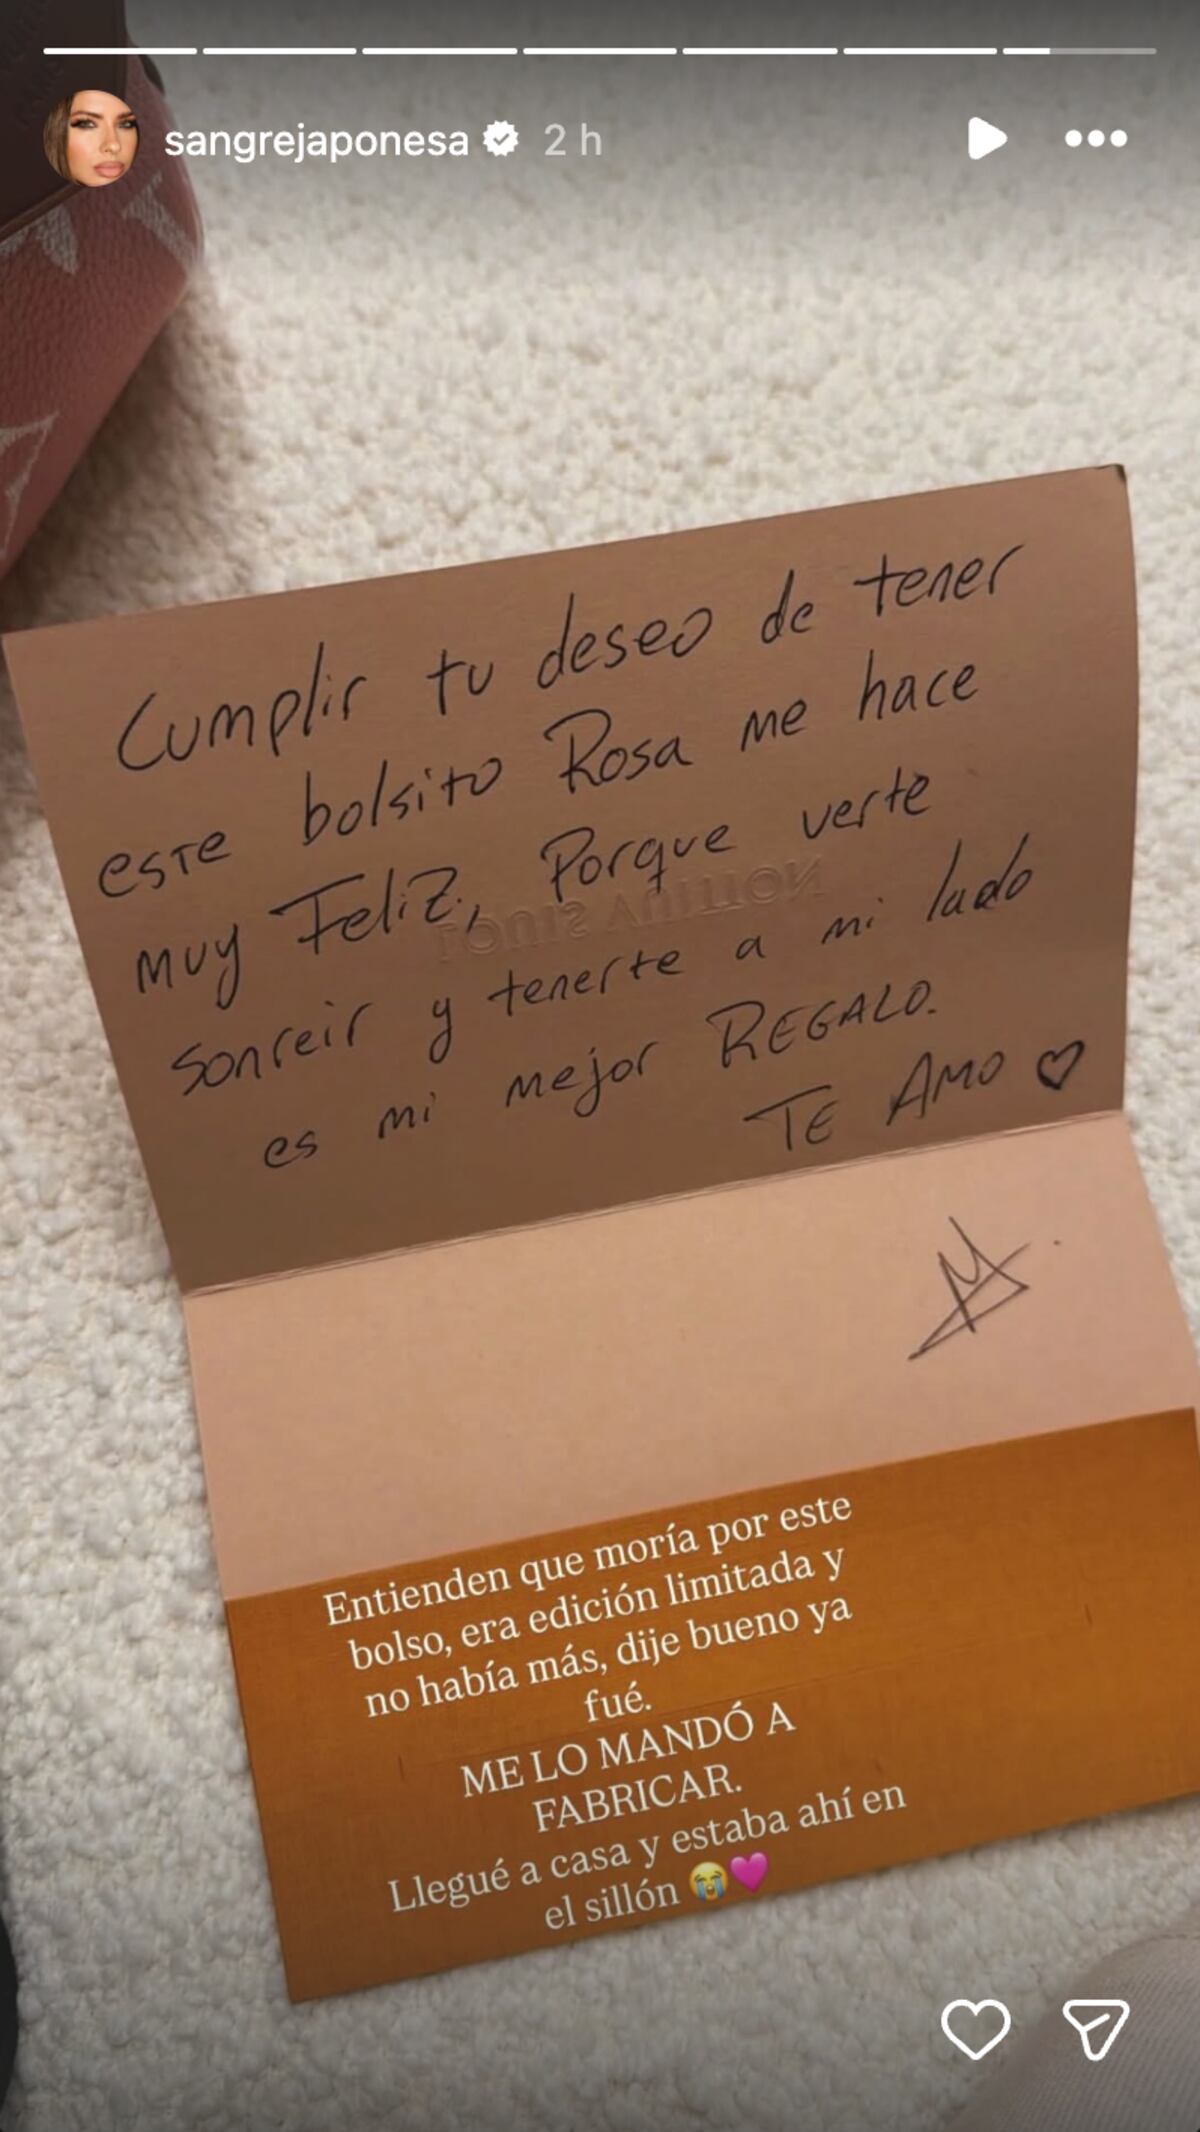 sangrejaponesa 2 h
Cumplir tu deseo de tener
este bolsito Rosa me hace
muy Feliz, Porque verte
sonreir y tenerte a mi lado
es mi mejor REGALO.
TE AMO
LOUIS VUITTON
Entienden que moría por este
bolso, era edición limitada y
no había más, dije bueno ya
fué.
ME LO MANDÓ A
FABRICAR.
Llegué a casa y estaba ahí en
el sillón 😭🩷